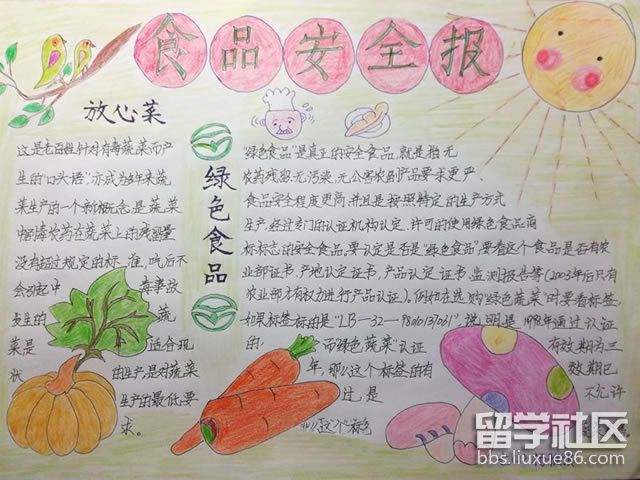 食品安全报
放心菜
这是老百姓针对有毒蔬菜而产
生的"口头语"亦成为多年来蔬
菜生产的一个新概念是蔬菜
中的农药在蔬菜上的残留量
没有超过规定的标准,吃后不
会引起中毒事故
发生的蔬
菜是适合现
状的生产是对蔬菜
生产的最低要
求。
绿色食品
"绿色食品"是真正的安全食品,就是指无
农药残留、无污染、无公害农副产品要求更严、
食品安全程度更高,并且是按照特定的生产方式
生产,经过专门的认证机构认定,许可的使用绿色食品商
标标志的安全食品。要认定是否是"绿色食品"要看这个食品是否有农
业部证书,产地认定证书,产品认定证书,监测报告等(2003年后只有
农业部才有权力进行产品认证)。例如在选购绿色蔬菜时要看标签,
如果标签标的是 说明是1998年通过认证
的,而绿色蔬菜"认证有效期为三
年,那么这个标签的有效期已
过,是不允许
留学社区
bbs.liuxue86.com